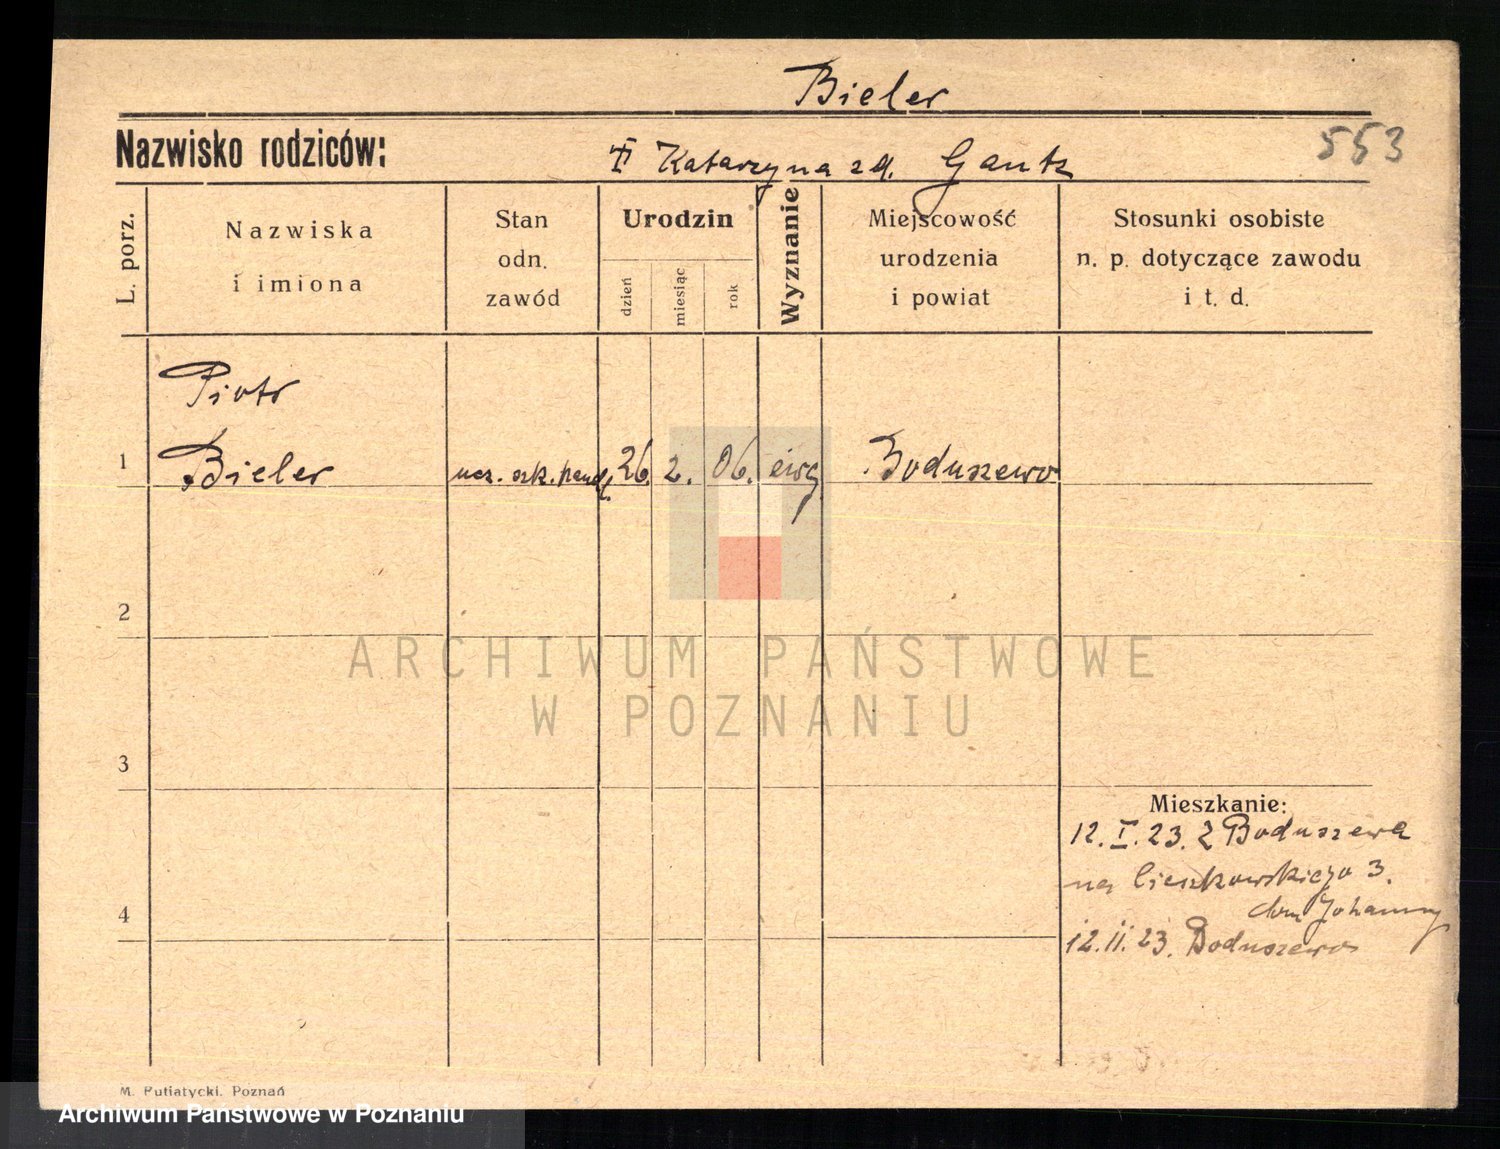 Bieler
Nazwisko rodziców:
Katarzyna zd. Gantz
553
L. porz.
Nazwiska i imiona
Stan odn. zawód
Urodzin
dzień
miesiąc
rok
Wyznanie
Miejscowość urodzenia i powiat
Stosunki osobiste n. p. dotyczące zawodu i t. d.
Piotr
1 Bieler ucz. szk. handl. 26. 2. 06. ewg Boduszewo
2
ARCHIWUM PAŃSTWOWE
W POZNANIU
3
Mieszkanie:
12. I. 23. z Boduszewa
na Cieszkowskiego 3.
dom Johanny
4
12. II. 23. Boduszewo
M. Putiatycki. Poznań
Archiwum Państwowe w Poznaniu